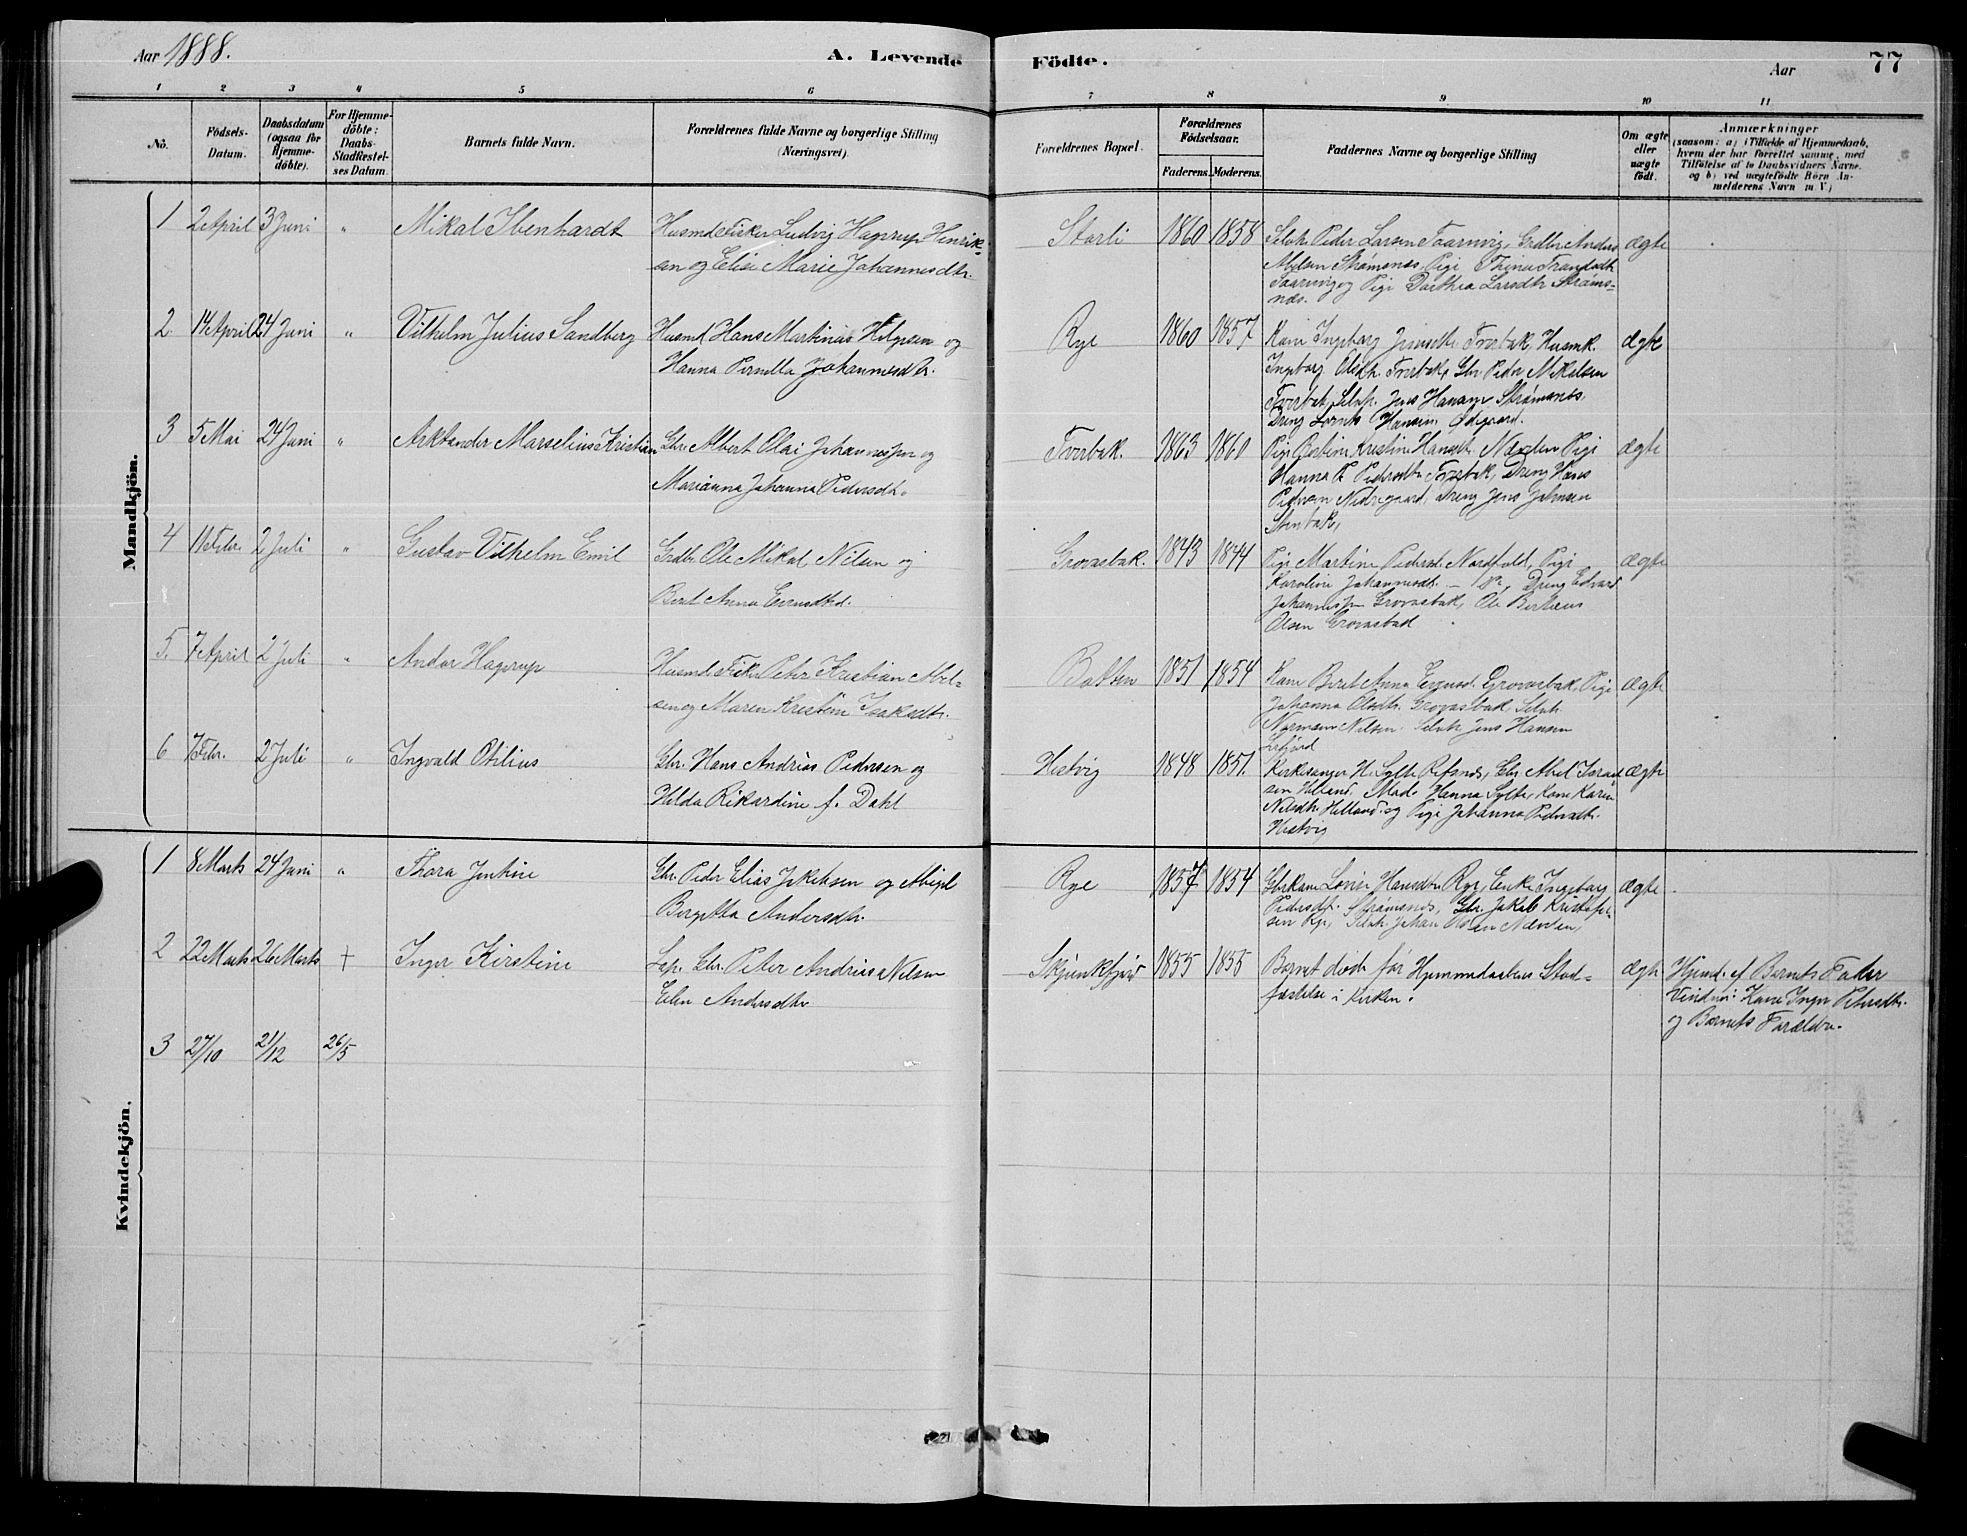 Aar 1888.
A. Levende Födte.
Aar
77
1 2 3 4 5 6 7 8 9 10 11
No.
Födsels-
Datum.
Daabsdatum
(ogsaa for
Hjemme-
döbte).
For Hjemme-
döbte:
Daabs-
Stadfæstel-
ses Datum.
Barnets fulde Navn.
Forældrenes fulde Navne og borgerlige Stilling
(Næringsvei).
Forældrenes Bopæl.
Forældrenes
Födselsaar.
Faderens. Moderens.
Faddernes Navne og borgerlige Stilling
Om ægte
eller
uægte
født.
Anmærkninger
(saasom: a) i Tilfælde af Hjemmedaab,
hvem der har forrettet samme, med
Tilføielse af to Daabsvidners Navne,
og b) ved uægtefødte Börn An-
melderens Navn m. V.)
Mandkjön.
1 2 April 3 Juni " Mikal Ibenhardt
Husmd Fisker Ludvig Hagerup Henrik-
sen og Elise Marie Johannesdtr.
Storli 1860 1858
Selvh. Peder Larsen Taarnvig, Grdbr Anders
Strømsnes, Pige
Taarnvig og Pige Dorthea Larsdtr Strøms-
nes.
ægte
2 14 April 24 Juni " Vilhelm Julius Sandberg
Husmd Hans Martinus Helgesen og
Hanna Pernella Johannesdtr.
Rye 1860 1857
Kone Ingeborg Jensdtr Tverbak, Husmk.
Ingeborg Olsdtr. Tverbak, Gbr. Peder Mikalsen
Tverbak, Selvh. Jens Hansen Strømsnes,
Dreng Hansen Ødegaard.
ægte
3 5 Mai 24 Juni " Arktander Marselius Kristian
Gbr. Albert Olai Johannessen og
Marianna Johanna Pedersdtr.
Tverbak. 1863 1860
Pige Kristine Hansdtr. Nevden Pige
Hanna P. Pedersdtr Tverbak, Dreng Hans
Pedersen Nedregaard, Dreng Jens Johnsen
ægte
4 11 Febr. 2 Juli " Gustav Vilhelm Emil
Grdbr. Ole Mikal Nilsen og
Berit Anna Evensdtr.
Grovasbak. 1843 1844
Pige Martine Pedersd. Nordfold, Pige
Karoline Johannesdt. – " –, Dreng Edvard
Johannessen Grovasbak, Ole Berteus
Olsen Grovasbak
ægte
5. 7 April 2 Juli " Andor Hagerup
Husmd. Fisker Peter Kristian Abel-
sen og Maren Kristine Isaksdtr.
Botten 1851 1854
Kone Berit Anna Evensd. Grovasbak, Pige
Johanna Olsdtr. Grovasbak, Selvh.
Normann Nilsen. Selvh Jens Hansen
ægte
6 7 Febr. 2 Juli " Ingvald Otilius
Gbr. Hans Andrias Pedersen og
Hilda Rikardine f. Dahl
Hestvig 1848 1851.
Kirkesanger H. Sylte Refsnes, Gbr Abel Israel-
sen Helland, Mad. Hanna Sylte, Kone Karen
Nilsdtr. Helland og Pige Johanna Pedersdtr.
Hestvig
ægte
Kvindekjön.
1 8 Marts 24 Juni " Thora Jentine
Gbr. Peder Elias Jakobsen og Abigel
Bergitta Andersdtr.
Rye 1857 1854
Gbrkone Lovise Hansdtr Rye, Enke Ingeborg
Pedersdtr. Strømsnes, Gbr. Jakob Kristofer-
sen Rye, Selvh. Johan Olsen Nevden,
ægte
2 22 Marts 26 Marts + Inger Kirstine
Lap. Gbr. Peter Andrias Nilsen
Elen Andersdtr
Skjunkfjord 1855 1855
Barnet døde før Hjemmedaabens Stad-
fæstelse i Kirken.
ægte
Hjemd. af Barnets Fader
Vidner: Kone Inger Petersdtr.
og Barnets Forældre.
3 27/10 21/12 26/5